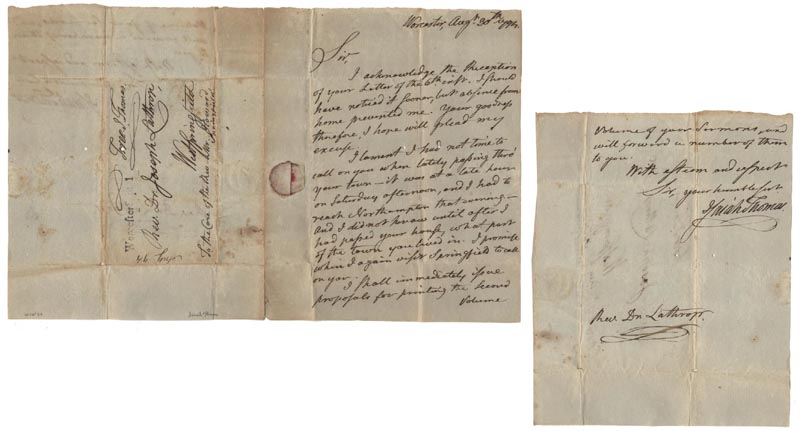 Worcester, Augt. 30th, 1794.
Sir,
I acknowledge the Reception
of your Letter of the 6th inst. I should
have noticed it sooner, but absence from
home prevented me. Your goodness
therefore, I hope will plead my
excuse.
I lament I had not time to
call on you when lately passing thro'
your town—it was at a late hour
on Saturday afternoon, and I had to
reach Northampton that evening—
and I did not know until after I
had passed your house, what part
of the town you lived in. I promise
when I again visit Springfield to call
on you.
I shall immediately issue
proposals for printing the Second
Volume
Volume of your Sermons, and
will forward a number of them
to you.
With esteem and respect
Sir, your humble Servt
Isaiah Thomas
Revd. Dr. Lathrop.
Worcester
Revd. Dr. Joseph Lathrop,
West Springfield
To the Care of the